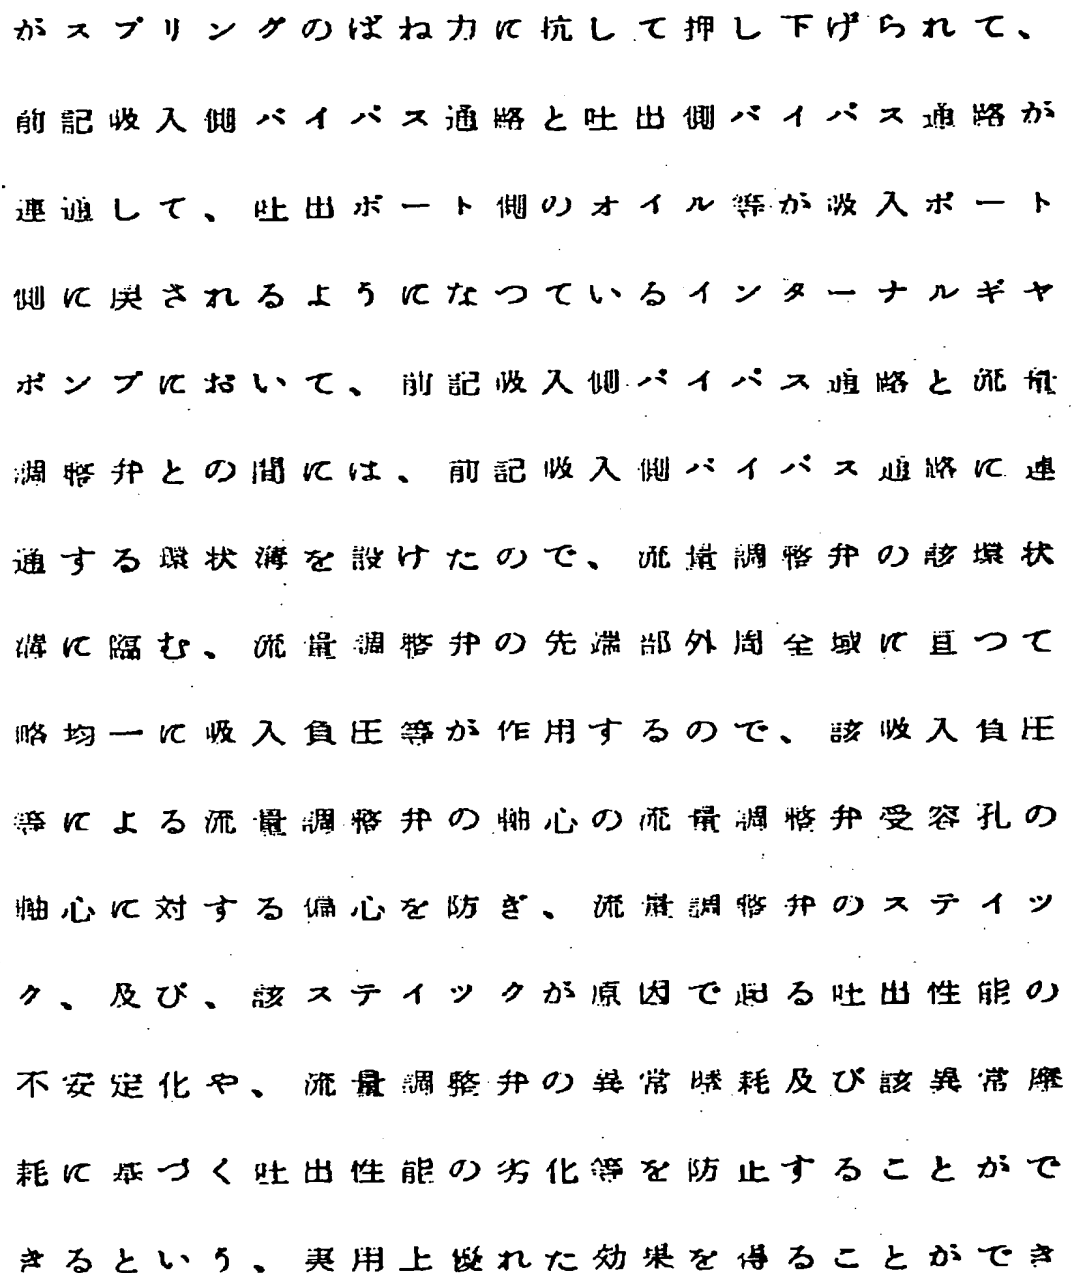 がスプリングのばね力に抗して押し下げられて、
前記吸入側バイパス通路と吐出側バイパス通路が
連通して、吐出ポート側のオイル等が吸入ポート
側に戻されるようになつているインターナルギヤ
ポンプにおいて、前記吸入側バイパス通路と流量
調整弁との間には、前記吸入側バイパス通路に連
通する環状溝を設けたので、流量調整弁の該環状
溝に臨む、流量調整弁の先端部外周全域に亘つて
略均一に吸入負圧等が作用するので、該吸入負圧
等による流量調整弁の軸心の流量調整弁受容孔の
軸心に対する偏心を防ぎ、流量調整弁のステイツ
ク、及び、該ステイツクが原因で起る吐出性能の
不安定化や、流量調整弁の異常摩耗及び該異常摩
耗に基づく吐出性能の劣化等を防止することがで
きるという、実用上優れた効果を得ることができ